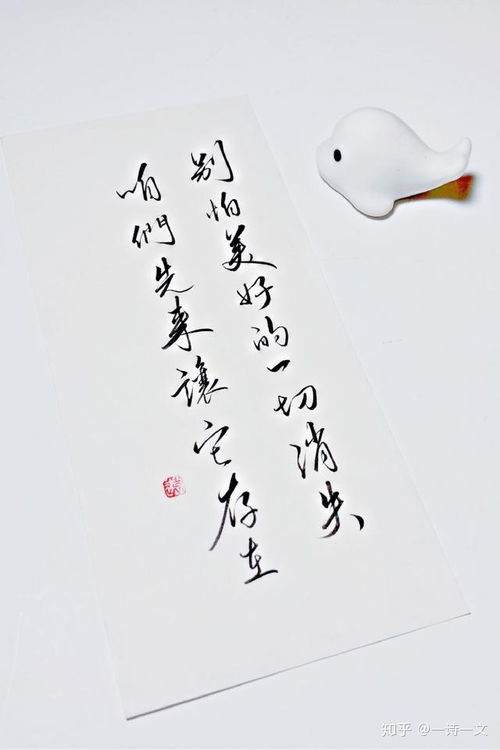 别怕美好的一切消失
咱們先来讓它存在
知乎 @一诗一文